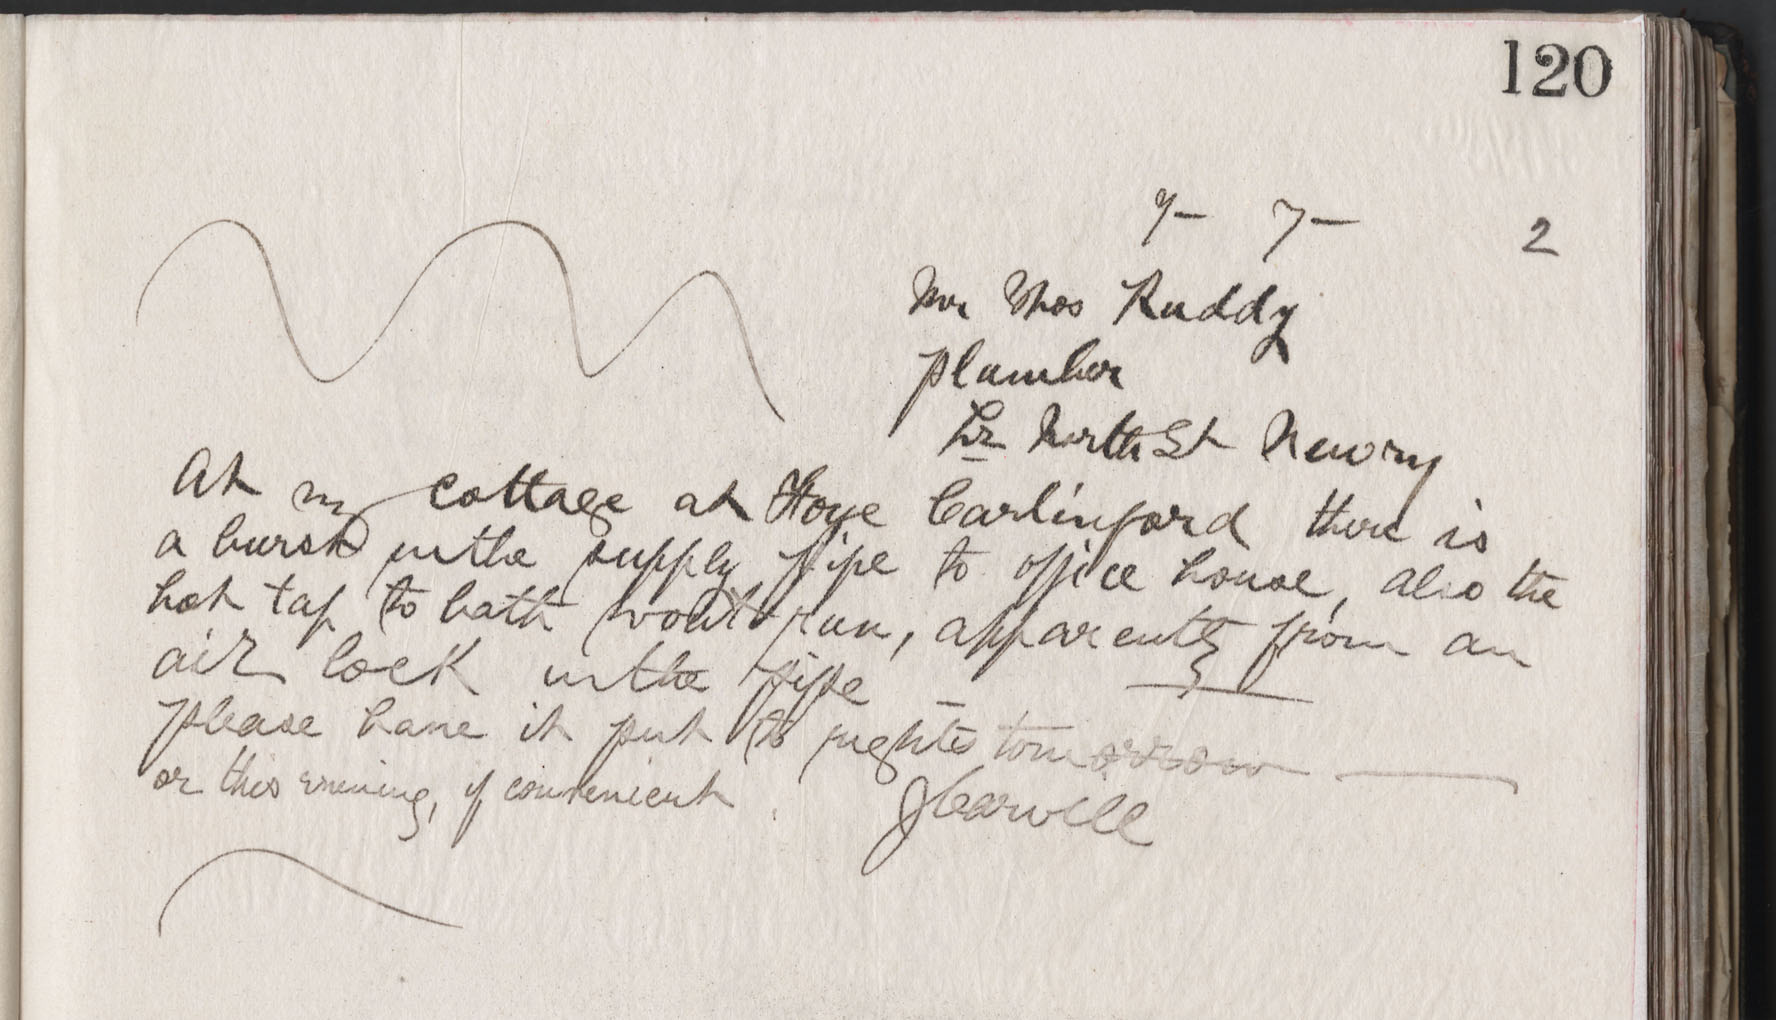 120
9- 7- 2
Mr Thos Ruddy
plumber
Lr North St Newry
At my cottage at Carlingford there is
a burst in the supply pipe to office house, also the
hot tap to bath wont run, apparently from an
air lock in the pipe -
please have it put to rights tomorrow
or this evening, if convenient.
J Carvill